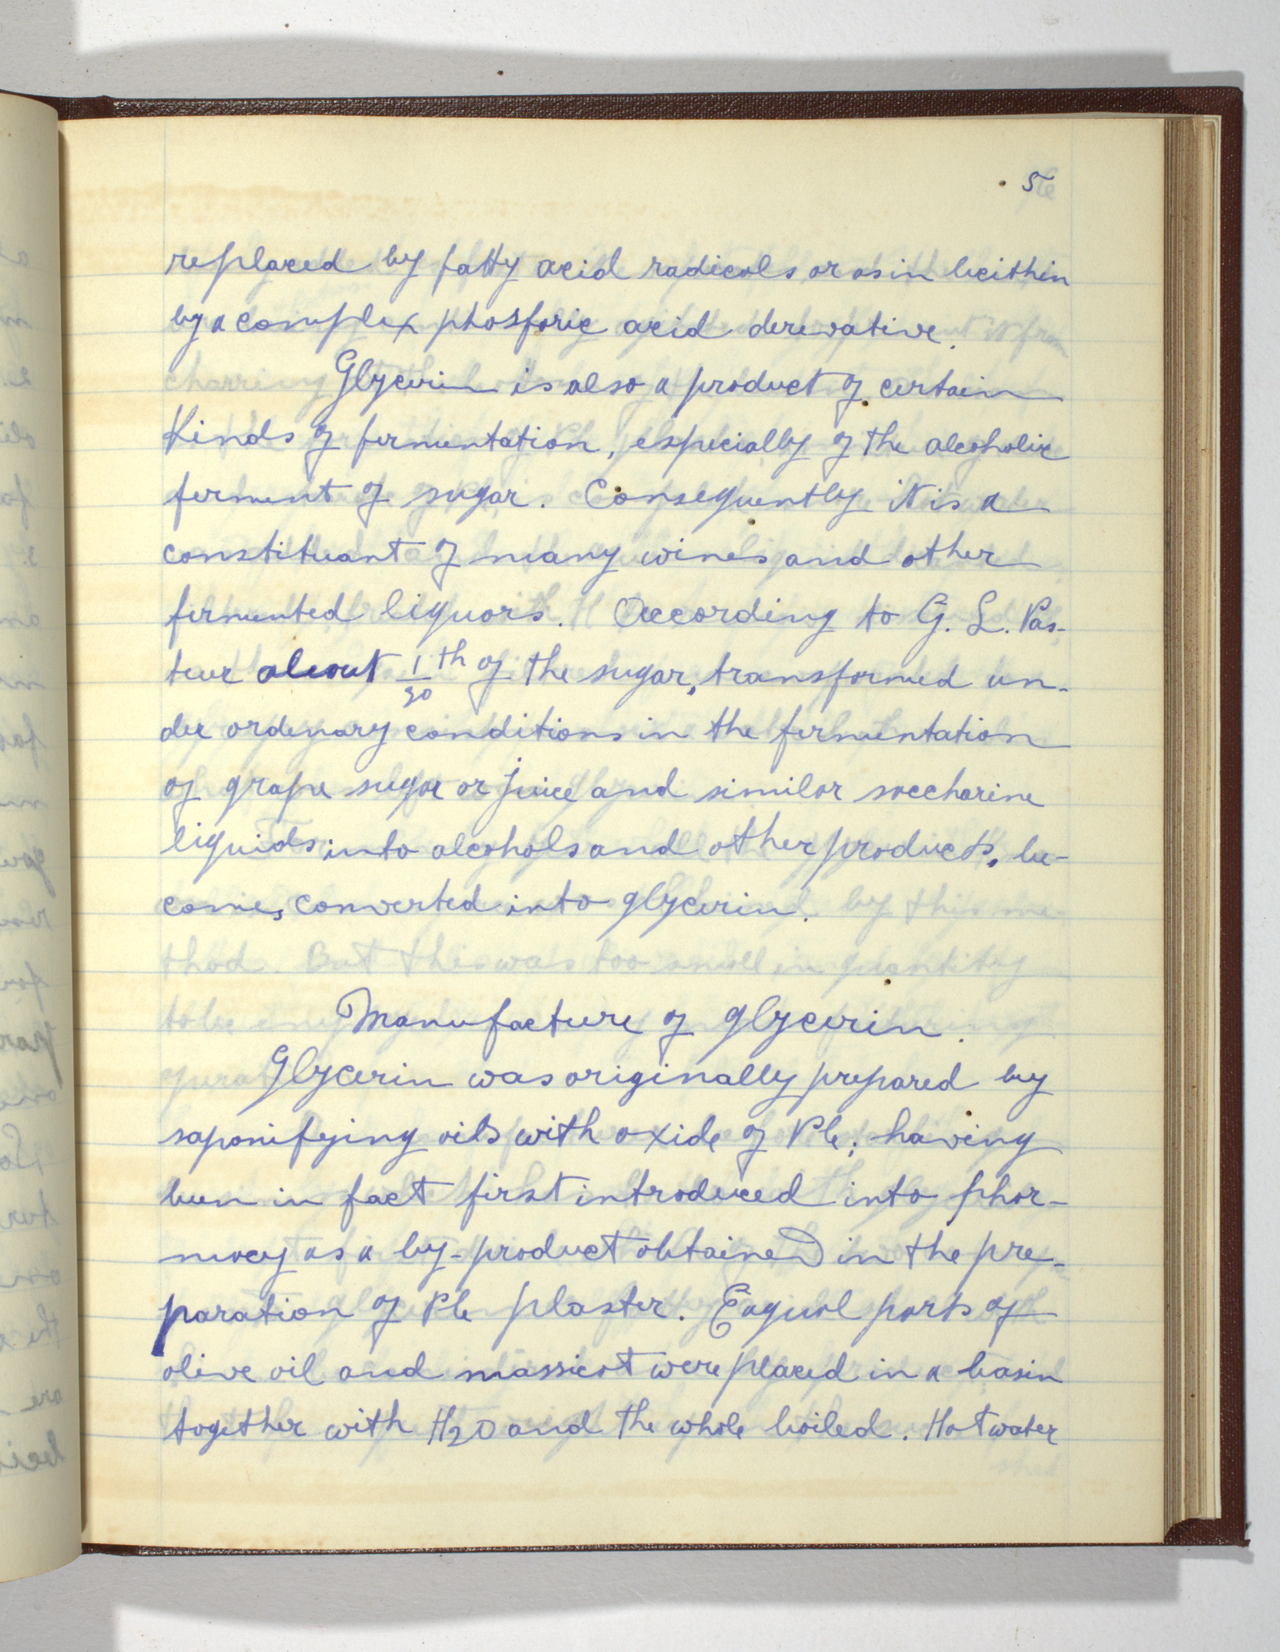 5
replaced by fatty acid radicals or as in lecithin
by a complex phosforic acid derevative.
Glycerin is also a product of certain
Kinds of fermentation, especially of the alcoholic
ferment of sugar. Consequently it is a
constituant of many wines and other
fermented liquors. According to G. L. Pas-
teur about 1/30 th of the sugar, transformed un-
der ordenary conditions in the fermentation
of grape sugar or juice and similar saccharine
liquids into alcohols and other products, be-
comes converted into glycerin.
Manufacture of glycerin.
Glycerin was originally prepared by
saponifying oils with oxide of Pb; having
been in fact first introduced into phar-
macy as a by-product obtained in the pre-
paration of Pb plaster. Eaqual parts of
olive oil and massicot were placed in a basin
together with H2O and the whole boiled. Hot water